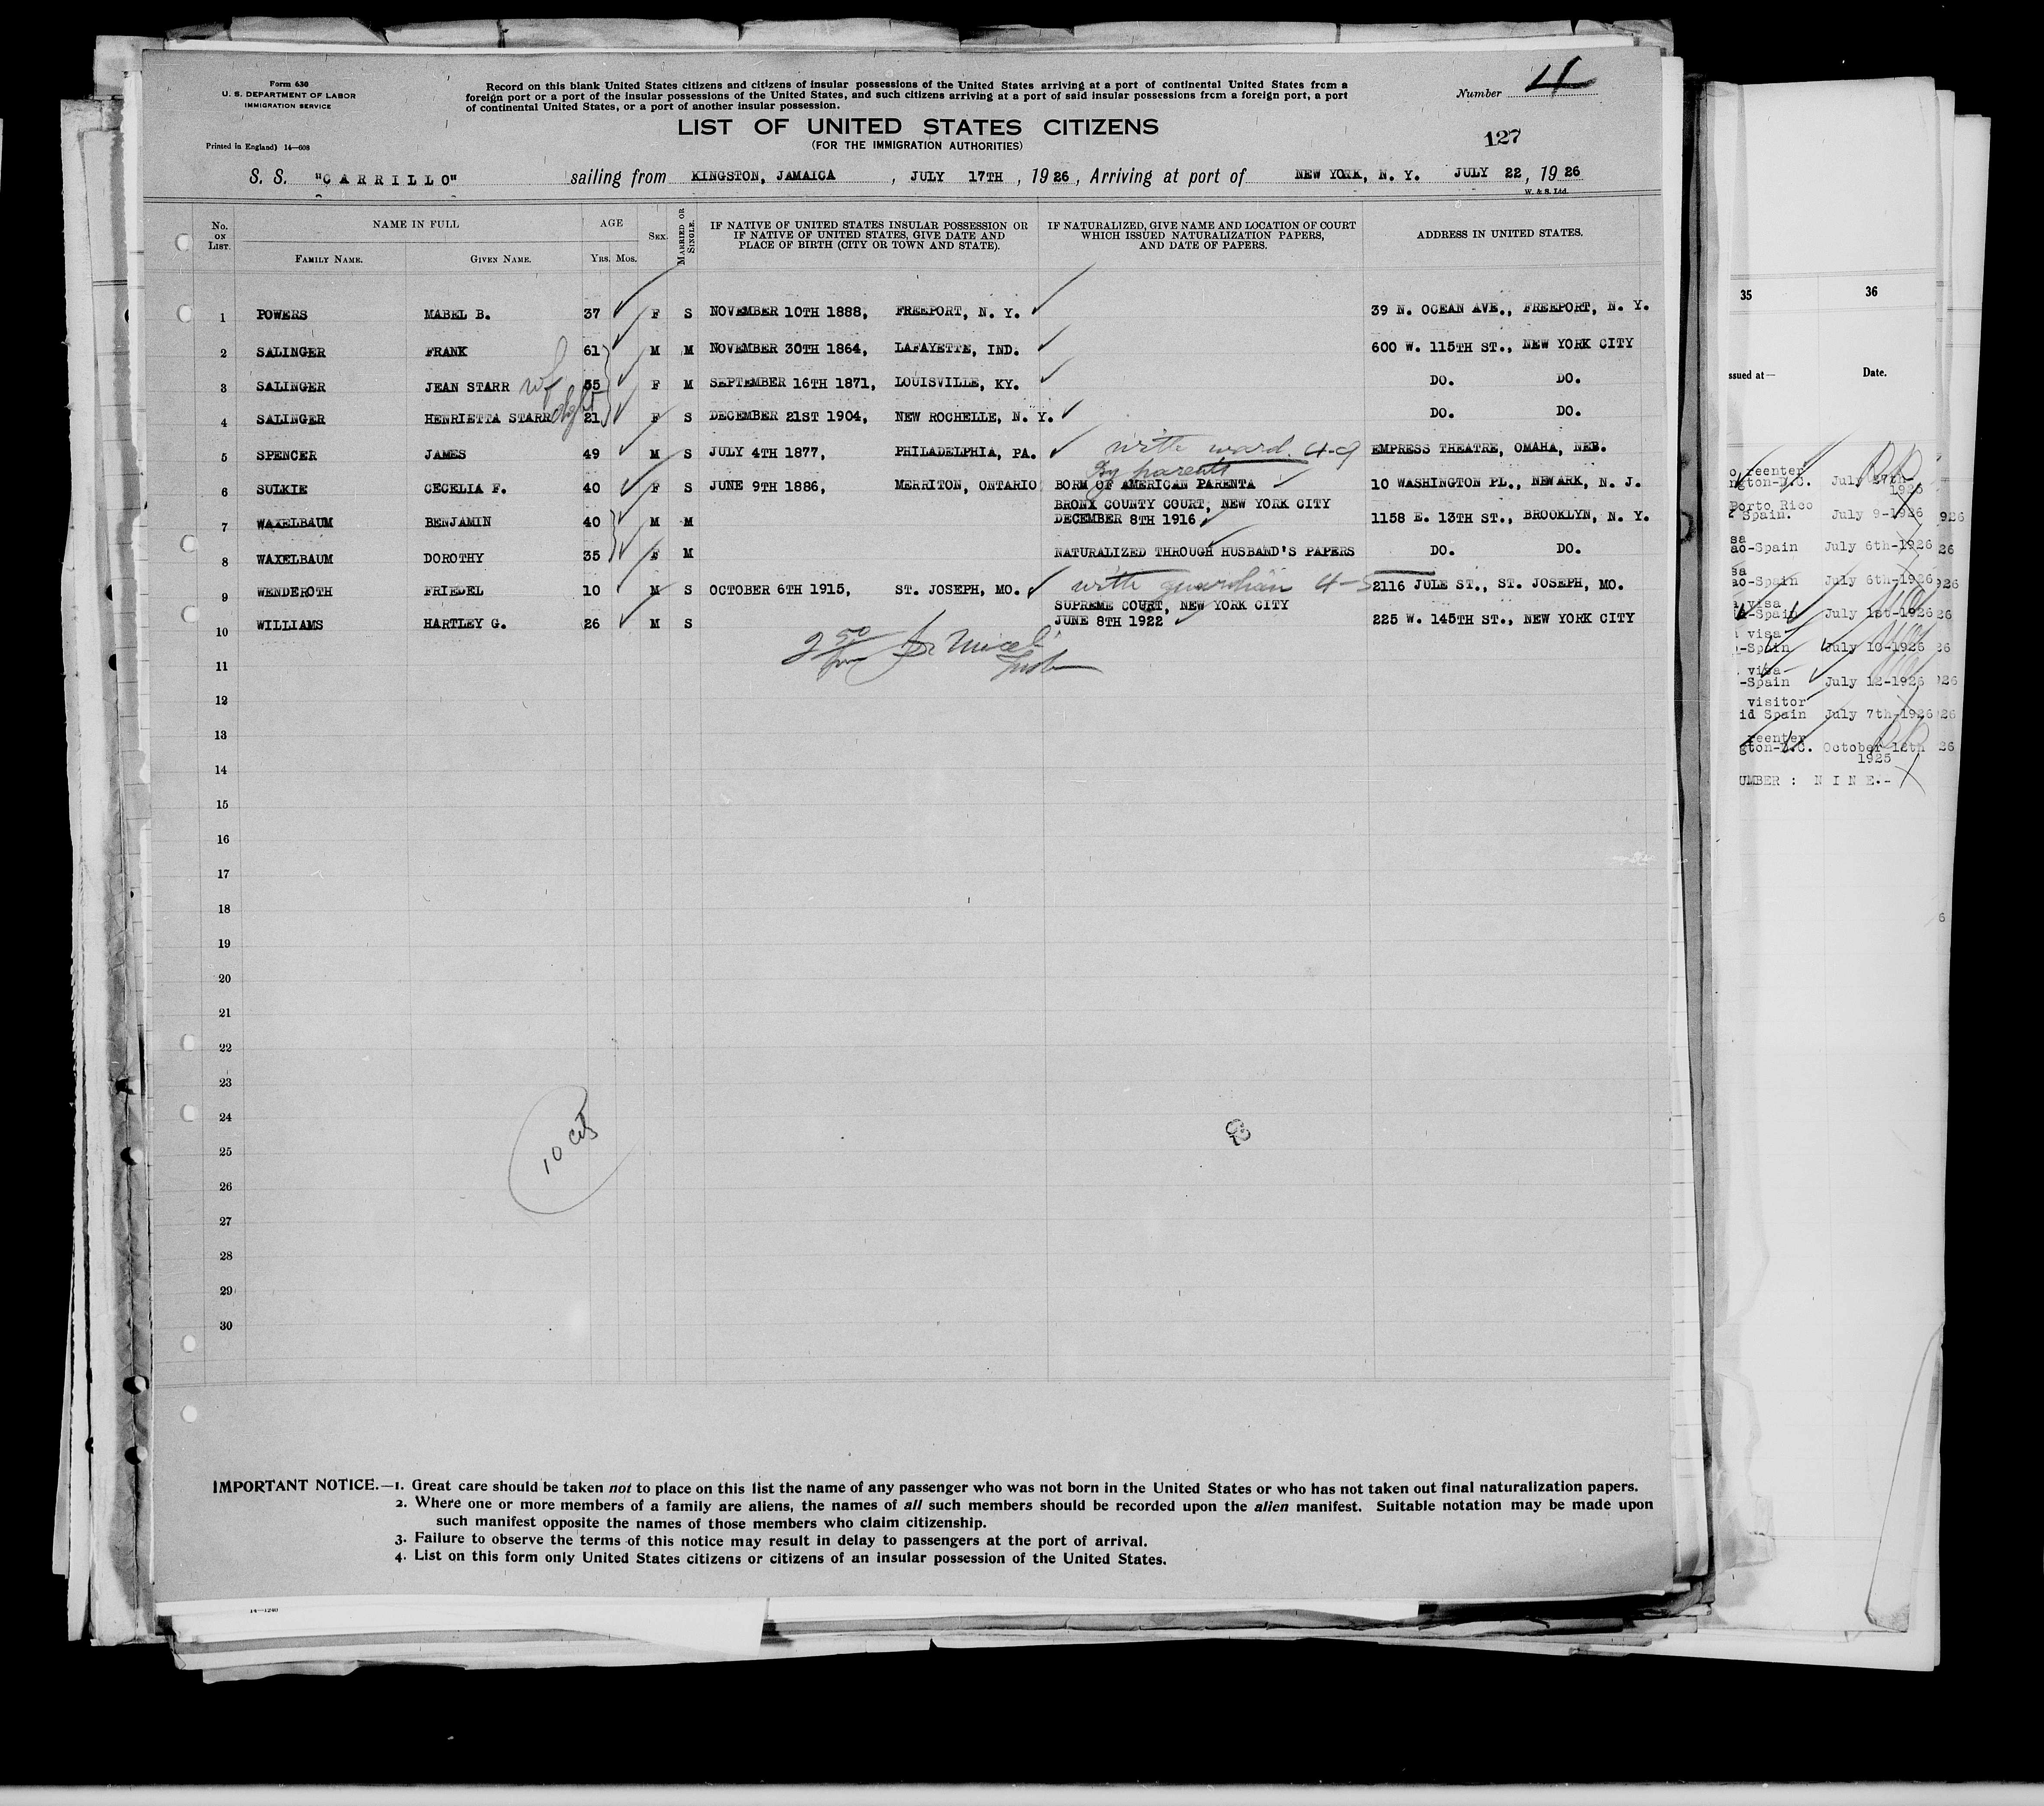 Form 630
U. S. DEPARTMENT OF LABOR
IMMIGRATION SERVICE
Printed in England) 14—608
Record on this blank United States citizens and citizens of insular possessions of the United States arriving at a port of continental United States from a
foreign port or a port of the insular possessions of the United States, and such citizens arriving at a port of said insular possessions from a foreign port, a port
of continental United States, or a port of another insular possession.
Number 4
LIST OF UNITED STATES CITIZENS
(FOR THE IMMIGRATION AUTHORITIES)
127
S. S. "CARRILLO" sailing from KINGSTON, JAMAICA, JULY 17TH, 1926, Arriving at port of NEW YORK, N. Y. JULY 22, 1926
W. & S. Ltd.
No. ON LIST. NAME IN FULL FAMILY NAME. GIVEN NAME. AGE YRS. MOS. SEX. MARRIED OR SINGLE. IF NATIVE OF UNITED STATES INSULAR POSSESSION OR IF NATIVE OF UNITED STATES, GIVE DATE AND PLACE OF BIRTH (CITY OR TOWN AND STATE). IF NATURALIZED, GIVE NAME AND LOCATION OF COURT WHICH ISSUED NATURALIZATION PAPERS, AND DATE OF PAPERS. ADDRESS IN UNITED STATES.
1 POWERS MABEL B. 37 F S NOVEMBER 10TH 1888, FREEPORT, N. Y. 39 N. OCEAN AVE., FREEPORT, N. Y.
2 SALINGER FRANK 61 M M NOVEMBER 30TH 1864, LAFAYETTE, IND. 600 W. 115TH ST., NEW YORK CITY
3 SALINGER JEAN STARR wf 55 F M SEPTEMBER 16TH 1871, LOUISVILLE, KY. DO. DO.
4 SALINGER HENRIETTA STARR dght 21 F S DECEMBER 21ST 1904, NEW ROCHELLE, N. Y. DO. DO.
5 SPENCER JAMES 49 M S JULY 4TH 1877, PHILADELPHIA, PA. with ward 4-9 EMPRESS THEATRE, OMAHA, NEB.
By parents
6 SULKIE CECELIA F. 40 F S JUNE 9TH 1886, MERRITON, ONTARIO BORM OF AMERICAN PARENTA 10 WASHINGTON PL., NEWARK, N. J.
BRONX COUNTY COURT, NEW YORK CITY
7 WAXELBAUM BENJAMIN 40 M M DECEMBER 8TH 1916 1158 E. 13TH ST., BROOKLYN, N. Y.
8 WAXELBAUM DOROTHY 35 F M NATURALIZED THROUGH HUSBAND'S PAPERS DO. DO.
9 WENDEROTH FRIEDEL 10 M S OCTOBER 6TH 1915, ST. JOSEPH, MO. with guardian 4-5 2116 JULE ST., ST. JOSEPH, MO.
SUPREME COURT, NEW YORK CITY
10 WILLIAMS HARTLEY G. 26 M S JUNE 8TH 1922 225 W. 145TH ST., NEW YORK CITY
2 50
11
12
13
14
15
16
17
18
19
20
21
22
23
24
25
26
27
28
29
30
10 cit
IMPORTANT NOTICE.—1. Great care should be taken not to place on this list the name of any passenger who was not born in the United States or who has not taken out final naturalization papers.
2. Where one or more members of a family are aliens, the names of all such members should be recorded upon the alien manifest. Suitable notation may be made upon
such manifest opposite the names of those members who claim citizenship.
3. Failure to observe the terms of this notice may result in delay to passengers at the port of arrival.
4. List on this form only United States citizens or citizens of an insular possession of the United States.
14—1240
35 36
ssued at— Date.
o reenter
ngton-D.C. July 27th-
1925
Porto Rico
Spain. July 9-1926 926
sa
ao-Spain July 6th-1926 26
sa
ao-Spain July 6th-1926 926
visa
-Spain July 1st-1926 26
visa
-Spain July 10-1926 26
visa
-Spain July 12-1926 926
visitor
id Spain July 7th-1926 26
reenter
gton-D.C. October 12th 26
1925
UMBER : N I N E.-
6